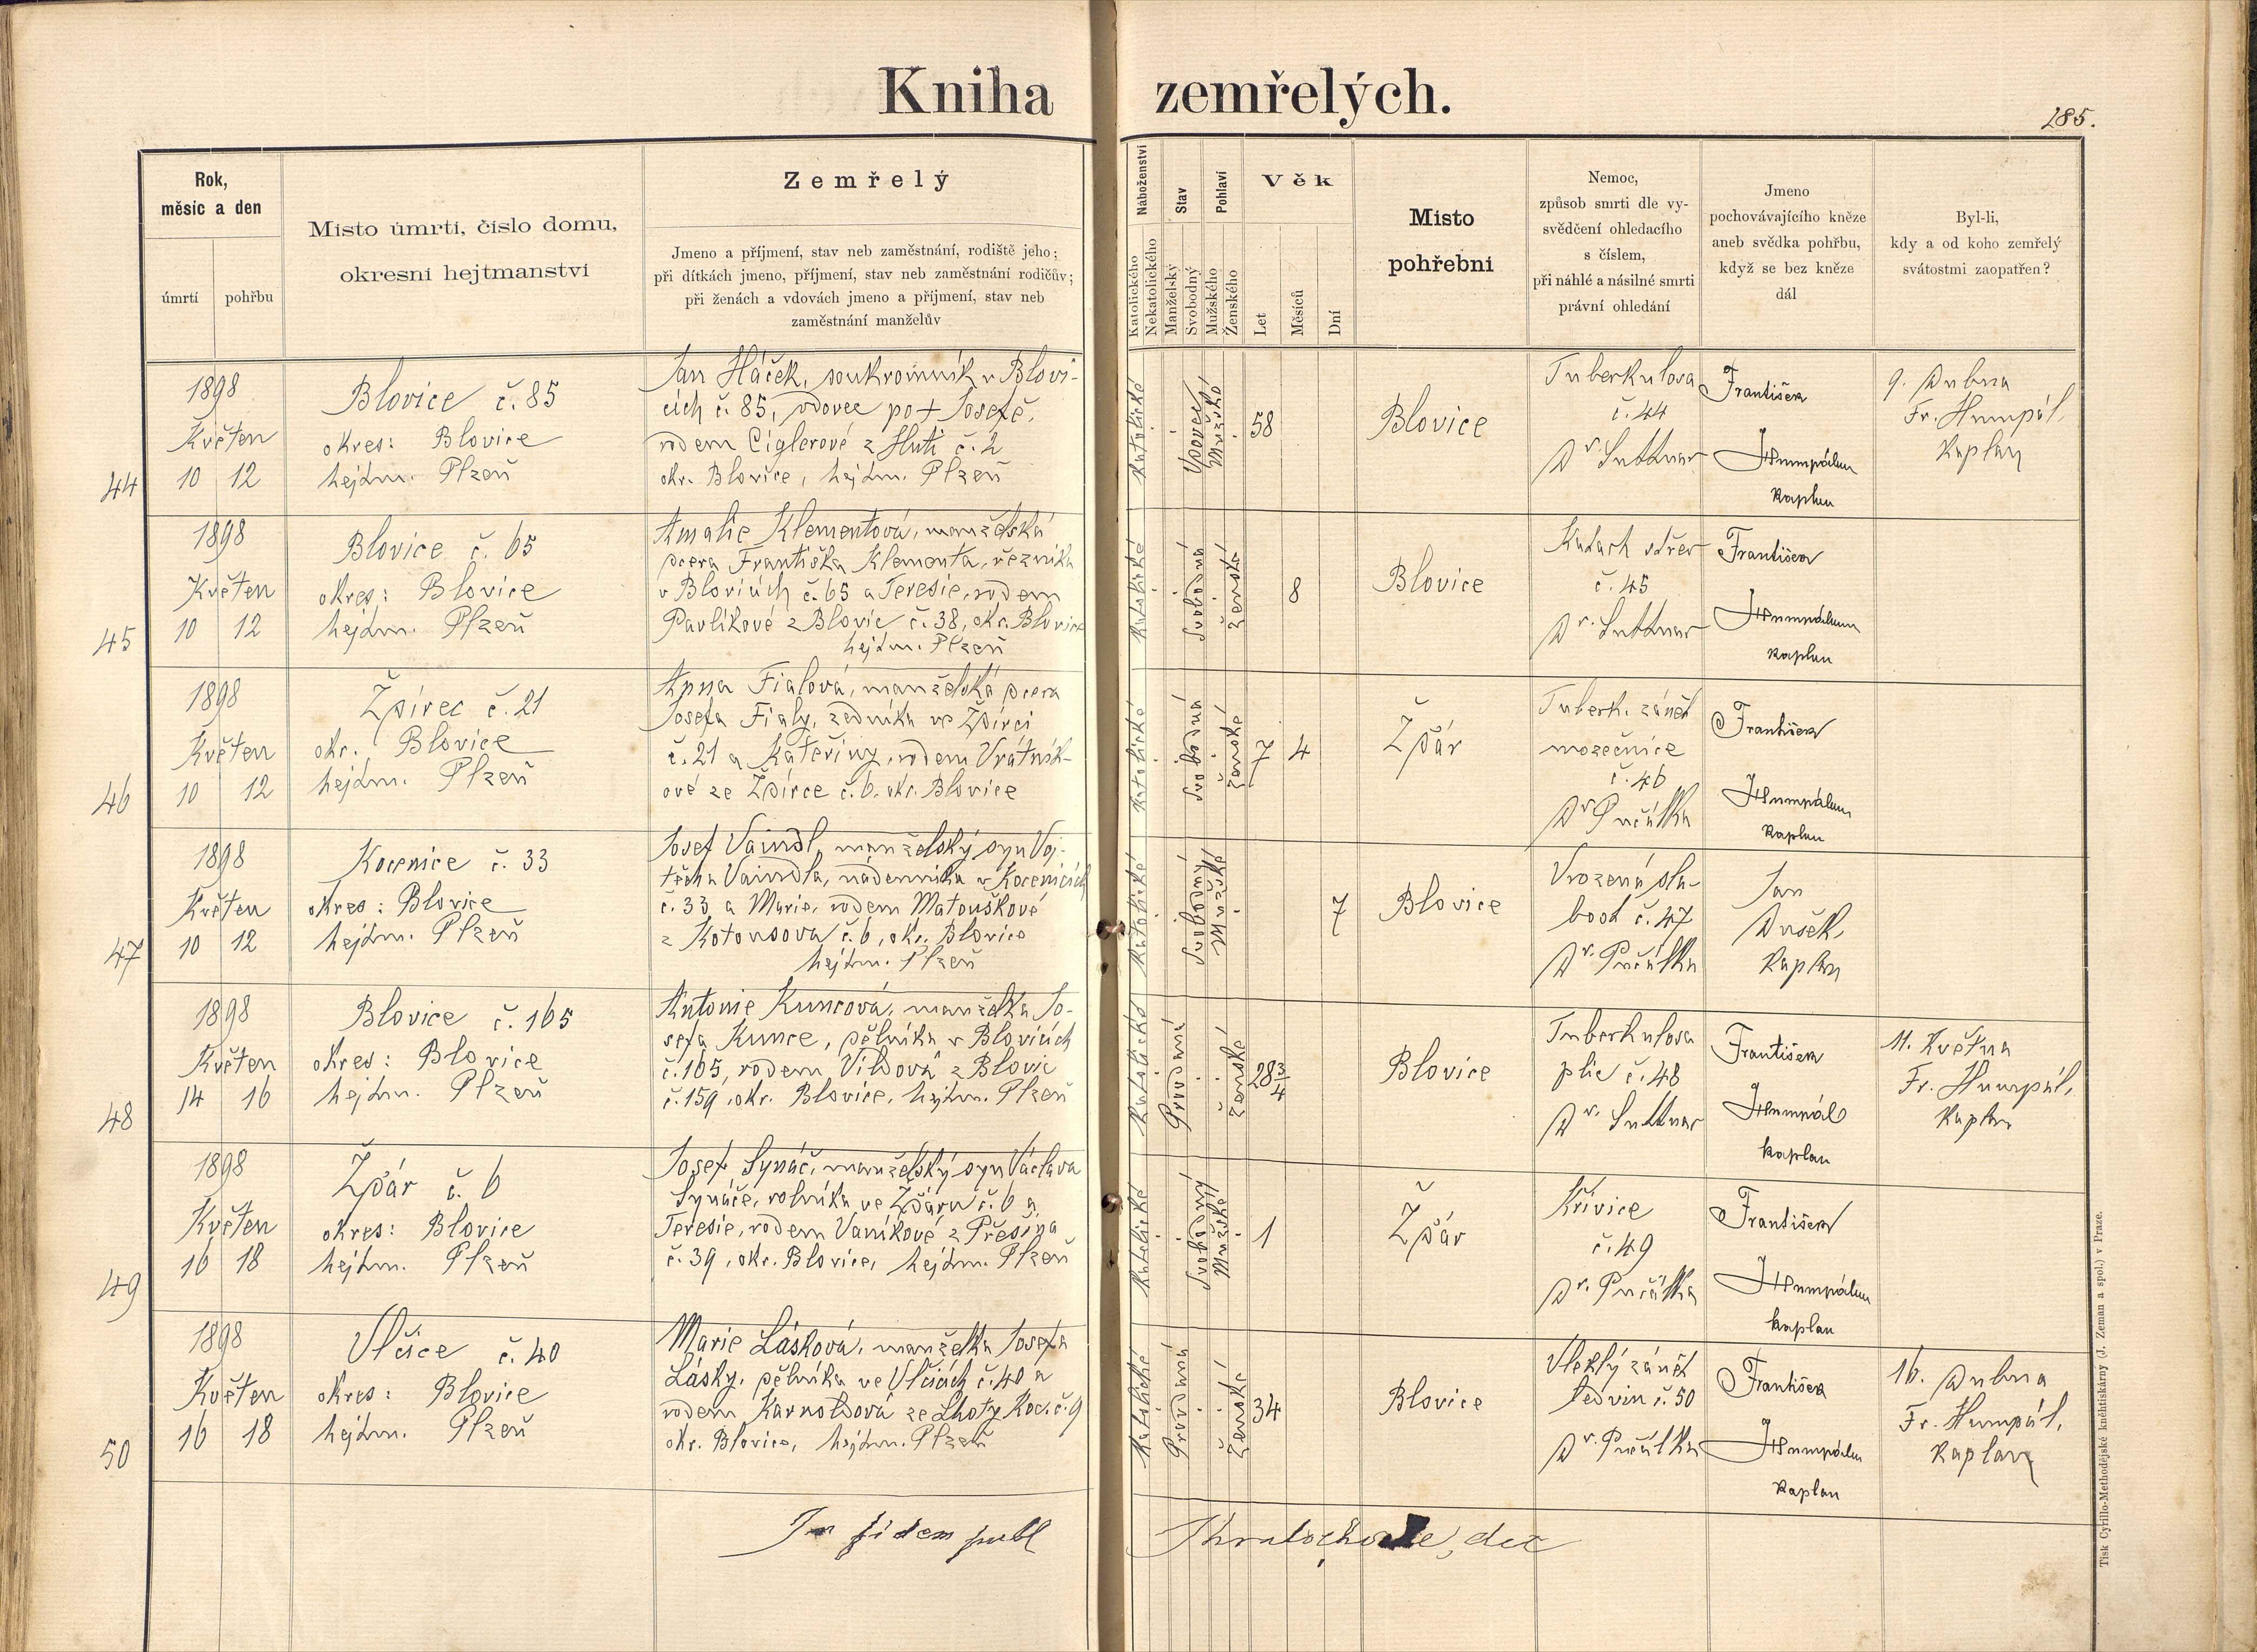 Kniha zemřelých.
185.
Rok,
měsíc a den
úmrtí
pohřbu
Místo úmrtí, číslo domu,
okresní hejtmanství
Zemřelý
Jmeno a příjmení, stav neb zaměstnání, rodiště jeho;
při dítkách jmeno, příjmení, stav neb zaměstnání rodičův;
při ženách a vdovách jmeno a příjmení, stav neb
zaměstnání manželův
Náboženství
Katolického
Nekatolického
Stav
Manželský
Svobodný
Pohlaví
Mužského
Ženského
Věk
Let
Měsíců
Dní
Místo
pohřební
Nemoc,
způsob smrti dle vy-
svědčení ohledacího
s číslem,
při náhlé a násilné smrti
právní ohledání
Jmeno
pochovávajícího kněze
aneb svědka pohřbu,
když se bez kněze
dál
Byl-li,
kdy a od koho zemřelý
svátostmi zaopatřen?
44
1898
Květen
10 12
Blovice č. 85
okres: Blovice
hejtm. Plzeň
Jan Háček, soukromník v Blovi-
cích č. 85, vdovec po + Josefě,
rodem Ciglerové z Huti č. 2
okr. Blovice, hejtm. Plzeň
Katolické
Vdovec
Mužské
58
Blovice
Tuberkulosa
č. 44
Dr. Suttnar
František
Humpál
kaplan
9. Dubna
Fr. Humpál,
kaplan
45
1898
Květen
10 12
Blovice č. 65
okres: Blovice
hejtm. Plzeň
Amalie Klementová, manželská
dcera Františka Klementa, řezníka
v Blovicích č. 65 a Teresie, rodem
Pavlíkové z Blovic č. 38, okr. Blovice
hejtm. Plzeň
Katolické
Svobodná
Ženské
8
Blovice
Katarh střev
č. 45
Dr. Suttnar
František
Humpál
kaplan
46
1898
Květen
10 12
Ždírec č. 21
okr. Blovice
hejtm. Plzeň
Anna Fialová, manželská dcera
Josefa Fialy, zedníka ve Ždírci
č. 21 a Kateřiny, rodem Vrátník-
ové ze Ždírce č. 6. okr. Blovice
Katolické
Svobodná
Ženské
7 4
Žďár
Tuberk. zánět
mozečnice
č. 46
Dr. Pučálka
František
Humpál
kaplan
47
1898
Květen
10 12
Kocenice č. 33
okres: Blovice
hejtm. Plzeň
Josef Vaindl, manželský syn Voj-
těcha Vaindla, nádenníka v Kocenicích
č. 33 a Marie, rodem Matouškové
z Kotousova č. 6, okr. Blovice
hejtm. Plzeň
Katolické
Svobodný
Mužské
7
Blovice
Vrozená sla-
bost č. 47
Dr. Pučálka
Jan
Dušek,
kaplan
48
1898
Květen
14 16
Blovice č. 165
okres: Blovice
hejtm. Plzeň
Antonie Kuncová, manželka Jo-
sefa Kunce, dělníka v Blovicích
č. 165, rodem Vildová z Blovic
č. 159, okr. Blovice, hejtm. Plzeň
Katolické
Provdaná
Ženské
28 3/4
Blovice
Tuberkulosa
plic č. 48
Dr. Suttnar
František
Humpál
kaplan
11. Května
Fr. Humpál,
kaplan
49
1898
Květen
16 18
Žďár č. 6
okres: Blovice
hejtm. Plzeň
Josef Synáč, manželský syn Václava
Synáče, rolníka ve Žďáru č. 6 a
Teresie, rodem Vaníkové z Přešína
č. 39, okr. Blovice, hejtm. Plzeň
Katolické
Svobodný
Mužské
1
Žďár
Křivice
č. 49
Dr. Pučálka
František
Humpál
kaplan
50
1898
Květen
16 18
Vlčice č. 40
okres: Blovice
hejtm. Plzeň
Marie Lásková, manželka Josefa
Lásky, dělníka ve Vlčicích č. 40 a
rodem Karnoldová ze Lhoty Koc. č. 9
okr. Blovice, hejtm. Plzeň
Katolické
Provdaná
Ženské
34
Blovice
Vleklý zánět
ledvin č. 50
Dr. Pučálka
František
Humpál
kaplan
16. Dubna
Fr. Humpál,
kaplan
In fidem publ
Tisk Cyrillo-Methodějské knihtiskárny (J. Zeman a spol.) v Praze.